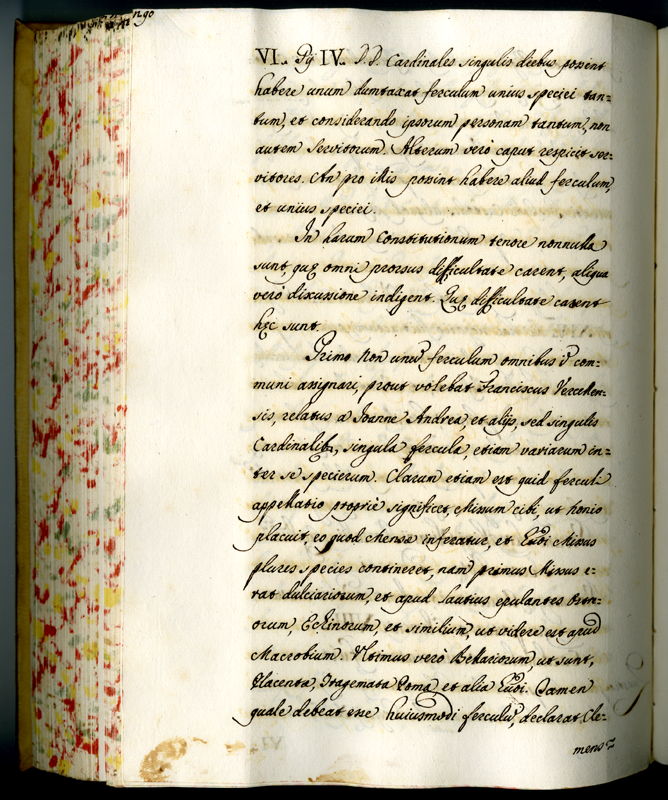 VI. Pij IV. D.D. Cardinales singulis diebus possint
habere unum dumtaxat ferculum unius speciei tan=
tum, et considerando ipsorum personam tantum, non
autem servitorum. Alterum verò caput respicit ser=
vitores. An pro illis possint habere aliud ferculum,
et unius speciei.
In harum Constitutionum tenore nonnulla
sunt quę omni prorsus difficultate carent, aliqua
verò discussione indigent. Quę difficultate carent
hęc sunt.
Primo non unū ferculum omnibus ī com=
muni assignari, prout volebat Franciscus Vercellen=
sis, relatus a Ioanne Andrea, et alijs, sed singulis
Cardinalib, singula fercula, etiam variarum in=
ter se specierum. Clarum etiam est quid ferculi
appellatio propriè significet, Missum cibi, ut
placuit, eo quod Mensæ inferatur, et Missus
plures species contineret, nam primus Missus e=
rat dulciariorum, et apud lautius epulantes Ostre=
orum, Echinorum, et similium, ut videre est apud
Macrobium. Ultimus verò Bellariorum ut sunt,
Placenta, Tragemata Poma, et alia. Tamen
quale debeat esse huiusmodi ferculū, declarat Cle=
mens